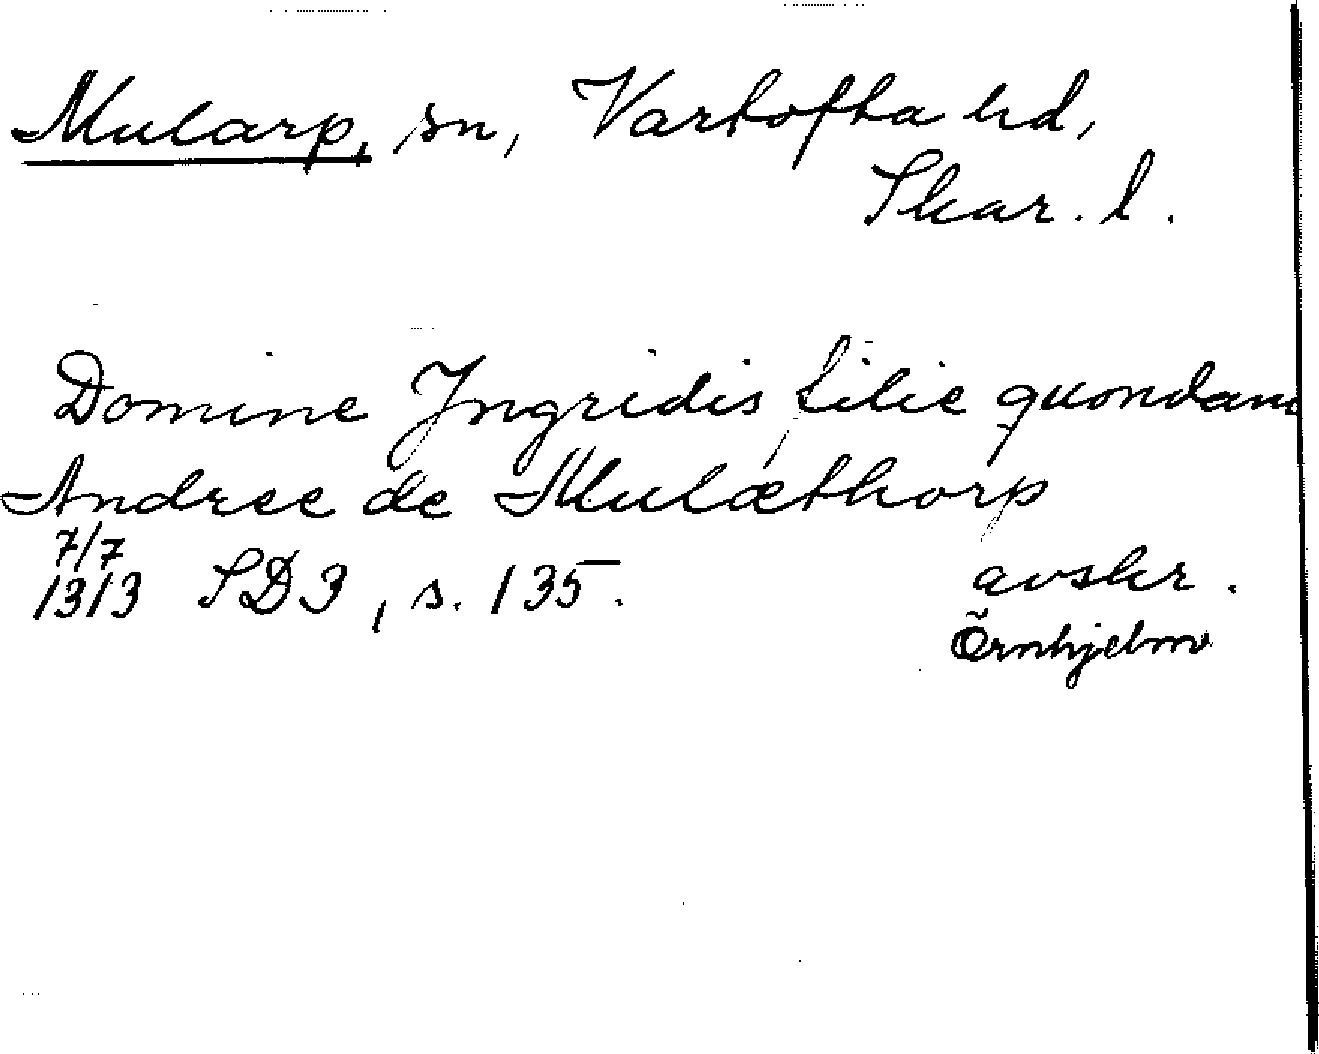 Mularp, sn, Vartofta hd,
Skar. l.
Domine Ingridis filie quondam
Andree de Mulæthorp
7/7
1313 SD3, s. 135.
avskr.
Örnhjelm